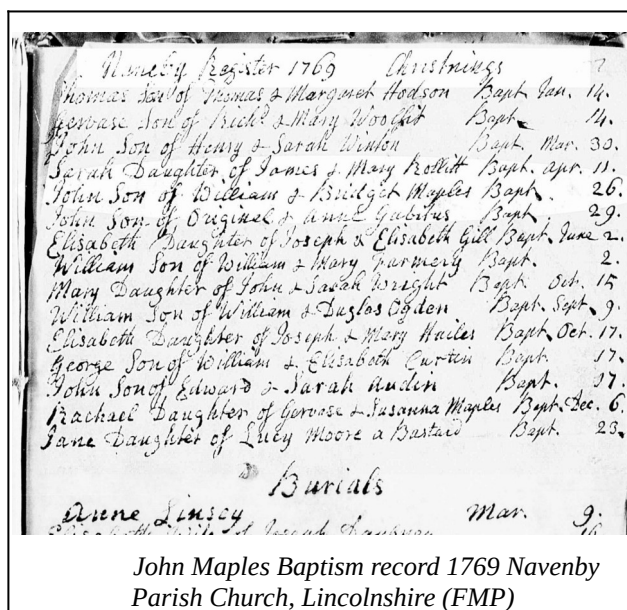 Naneby Register 1769 Christnings
Thomas Son of Thomas & Margaret Hodson Bapt. Jan. 14.
Gervase Son of Richd. & Mary Bapt. 14.
John Son of Henry & Sarah Winton Bapt. Mar. 30.
Sarah Daughter of James & Mary Rollitt Bapt. Apr. 11.
John Son of William & Bridget Maples Bapt. 26
John Son of Original & Anne Bapt. 29.
Elisabeth Daughter of Joseph & Elisabeth Gill Bapt. June 2.
William Son of William & Mary Farmery Bapt. 2.
Mary Daughter of John & Sarah Wright Bapt. Oct. 15
William Son of William & Duglas Ogden Bapt. Sept. 9.
Elisabeth Daughter of Joseph & Mary Hailes Bapt. Oct. 17.
George Son of William & Elisabeth Curten Bapt. 17.
John Son of Edward & Sarah Auden Bapt. 17.
Rachael Daughter of Gervase & Susanna Maples Bapt. Dec. 6.
Jane Daughter of Lucy Moore a Bastard Bapt. 23.
Burials
Anne Linsey Mar. 9.
Wife of Joseph 16
John Maples Baptism record 1769 Navenby
Parish Church, Lincolnshire (FMP)